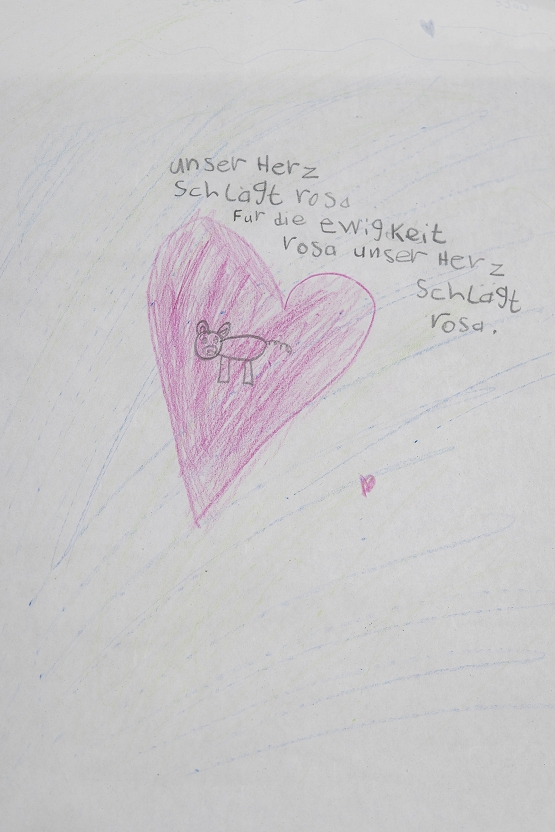 unser Herz
Schlägt rosa
Fur die ewigkeit
rosa unser Herz
Schlägt
rosa.